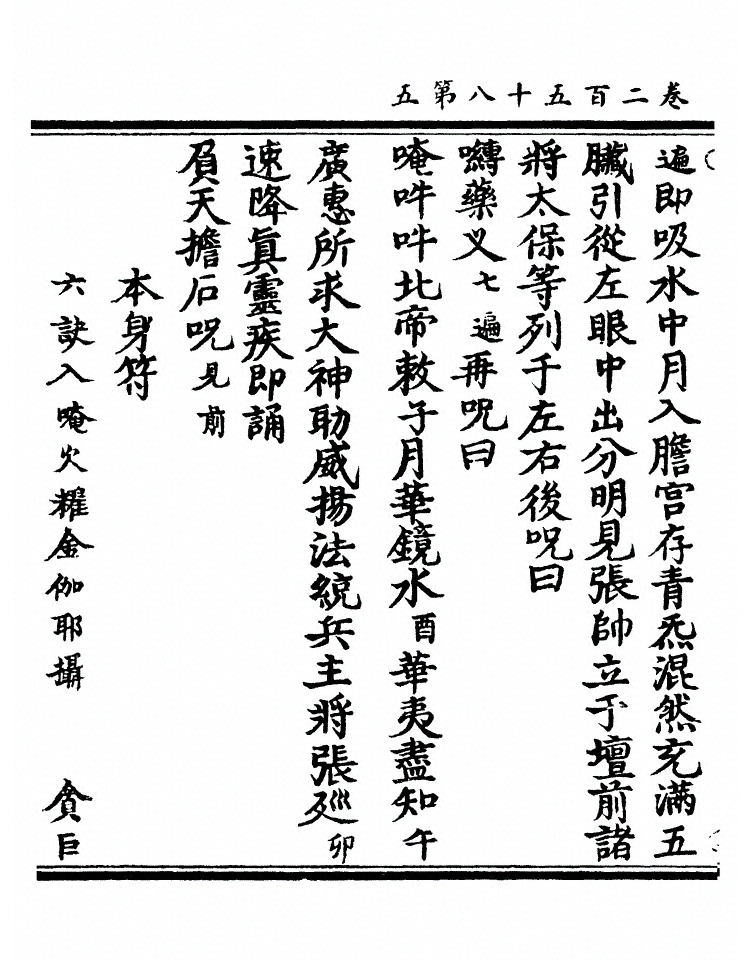 卷二百五十八第五
遍即吸水中月入膽宮存青炁混然充滿五
臟引從左眼中出分明見張帥立于壇前諸
將太保等列于左右後呪曰
囀藥义七遍再呪曰
唵吽吽北帝敕子月華鏡水酉華夷盡知午
廣惠所求大神助威揚法統兵主將張巡卯
速降眞靈疾即誦
負天擔石呪見前
本身符
六訣入唵火耀金伽耶攝 貪巨